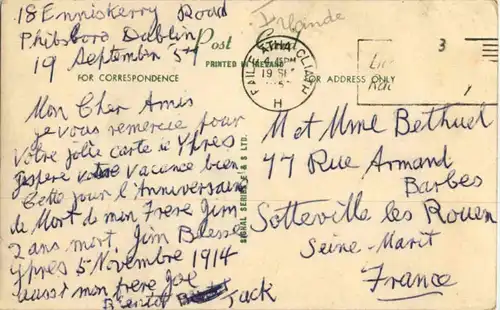 18 Enniskerry Road
Phibsboro Dublin
19 Septembre 57
Irlande
Post Card
PRINTED IN IRELAND
FOR CORRESPONDENCE
FOR ADDRESS ONLY
BAILE ÁTHA CLIATH
19 SEP
H
3
Mon Cher Amis
je vous remercie pour
votre jolie carte de Ypres
J'espere votre vacance bien
Cette jour l'Anniversaire
de Mort de mon Frere Jim
2 ans mort. Jim Blesse
Ypres 5 Novembre 1914
aussi mon frere Joe
Bientot Jack
SIGNAL SERIES, E. & S. LTD.
M et Mme Bethuel
77 Rue Armand
Barbes
Sotteville les Rouen
Seine-Marit
France